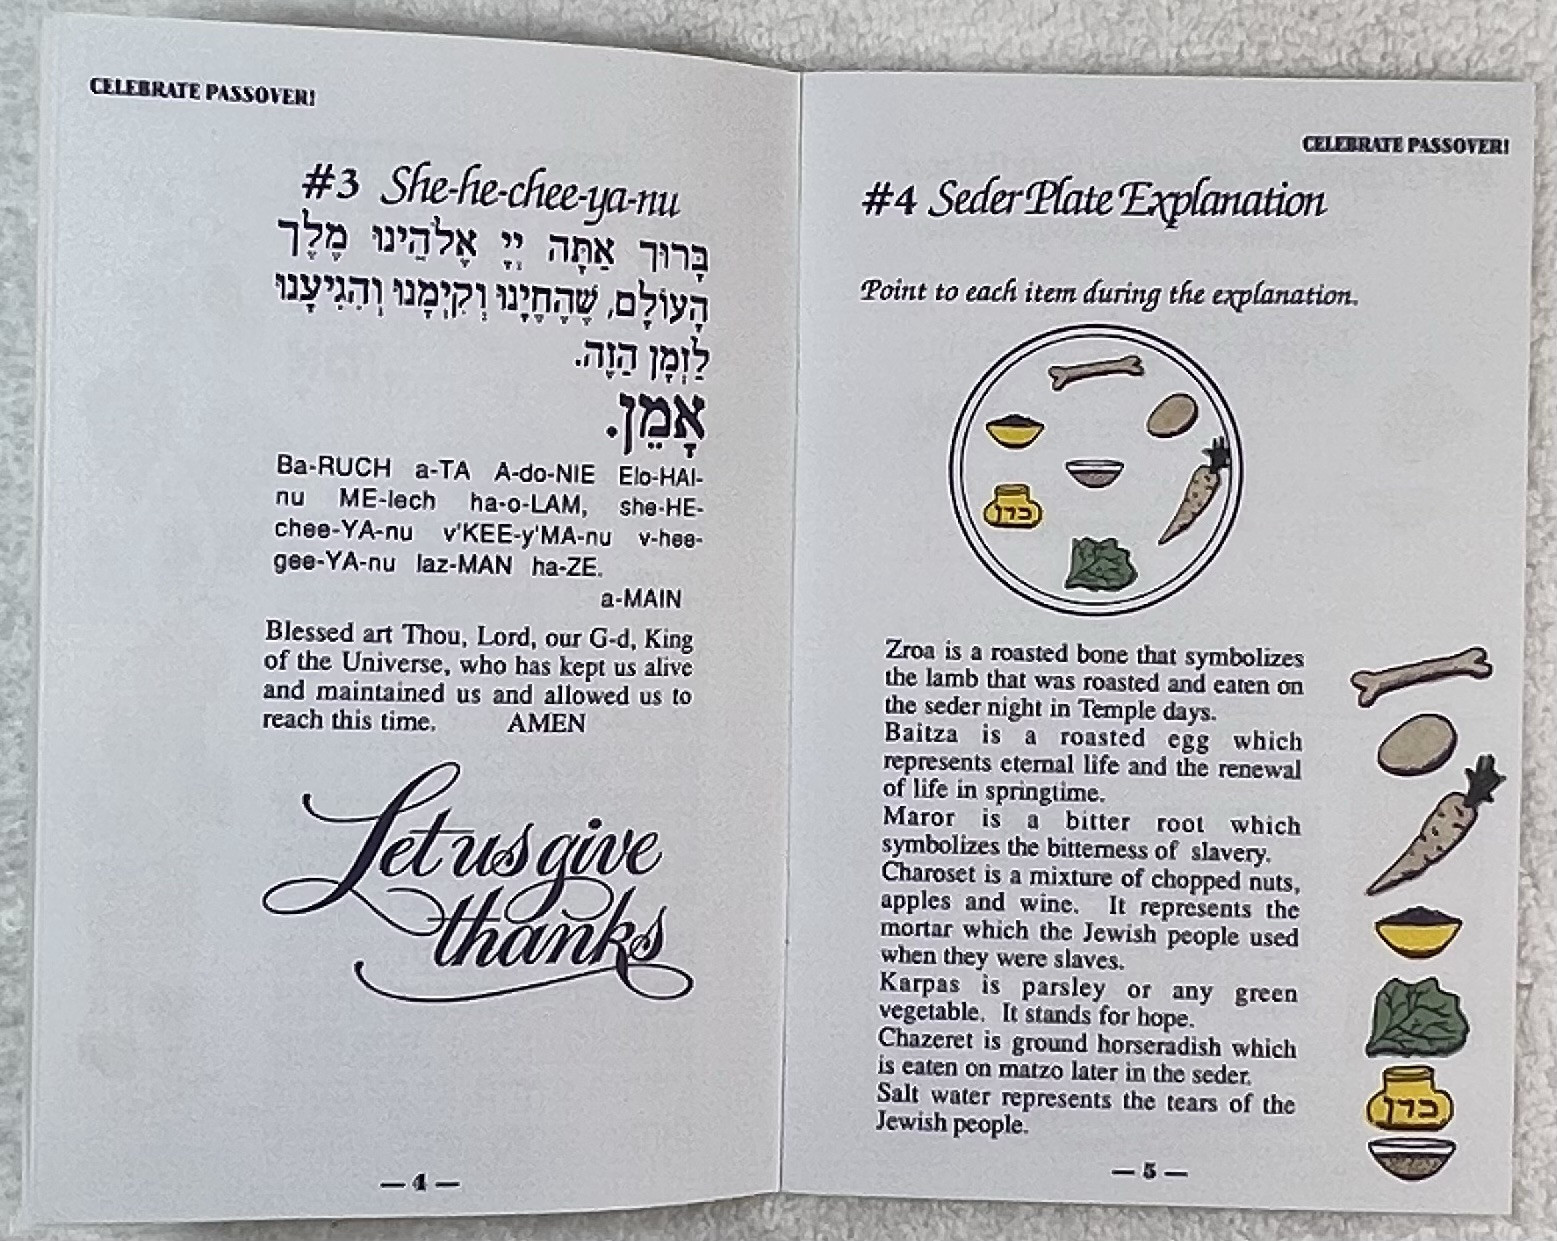 CELEBRATE PASSOVER!
#3 She-he-chee-ya-nu
בָּרוּךְ אַתָּה יְיָ אֱלֹהֵינוּ מֶלֶךְ
הָעוֹלָם, שֶׁהֶחֱיָנוּ וְקִיְּמָנוּ וְהִגִּיעָנוּ
לַזְּמָן הַזֶּה.
אָמֵן.
Ba-RUCH a-TA A-do-NIE Elo-HAI-
nu ME-lech ha-o-LAM, she-HE-
chee-YA-nu v'KEE-y'MA-nu v-hee-
gee-YA-nu laz-MAN ha-ZE.
a-MAIN
Blessed art Thou, Lord, our G-d, King
of the Universe, who has kept us alive
and maintained us and allowed us to
reach this time. AMEN
Let us give
thanks
— 4 —
CELEBRATE PASSOVER!
#4 Seder Plate Explanation
Point to each item during the explanation.
כרן
Zroa is a roasted bone that symbolizes
the lamb that was roasted and eaten on
the seder night in Temple days.
Baitza is a roasted egg which
represents eternal life and the renewal
of life in springtime.
Maror is a bitter root which
symbolizes the bitterness of slavery.
Charoset is a mixture of chopped nuts,
apples and wine. It represents the
mortar which the Jewish people used
when they were slaves.
Karpas is parsley or any green
vegetable. It stands for hope.
Chazeret is ground horseradish which
is eaten on matzo later in the seder.
Salt water represents the tears of the
Jewish people.
כרן
— 5 —